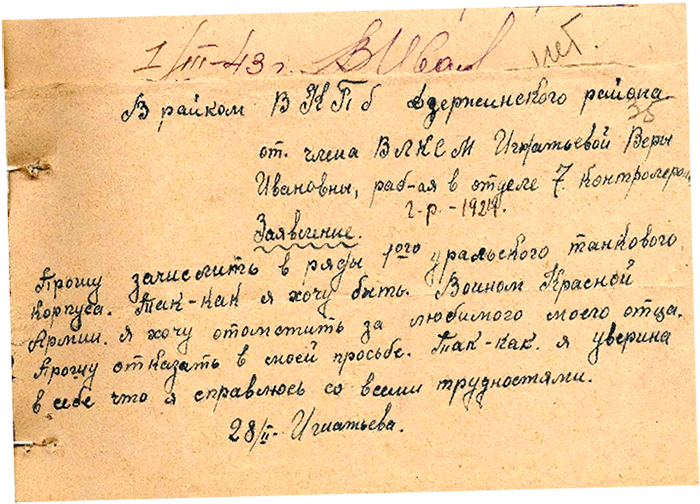 1/III-43 г.
В райком ВКПб Дзержинского района
35
от члена ВЛКСМ Игнатьевой Веры
Ивановны, раб-ая в отделе 7 контролером
г-р. - 1924.
Заявление.
Прошу зачислить в ряды 1ого уральского танкового
корпуса. Так-как я хочу быть. Воином Красной
Армии. я хочу отомстить за любимого моего отца.
Прошу отказать в моей просьбе. Так-как. я уверина
в себе что я справлюсь со всеми трудностями.
28/II- Игнатьева.